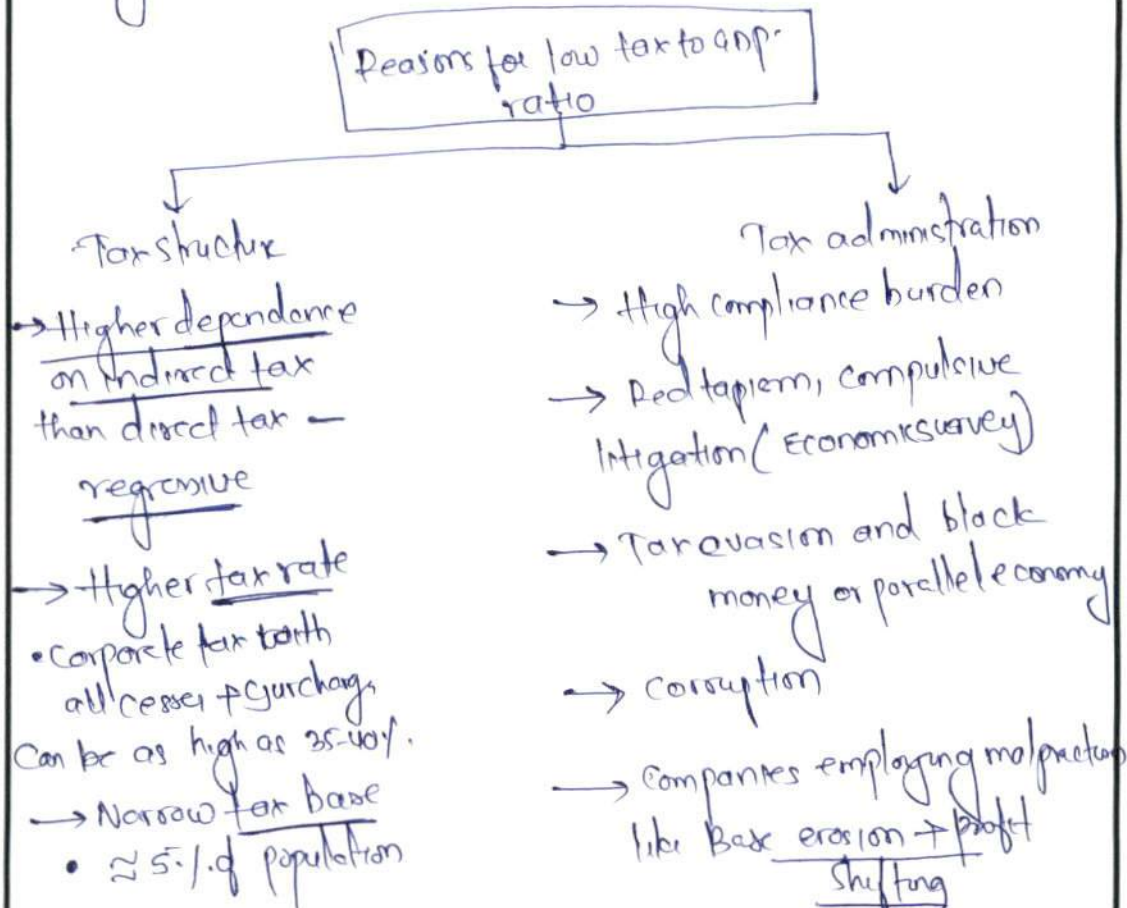 Reasons for low tax to GDP.
ratio
Tax structure
→ Higher dependence
on indirect tax
than direct tax —
regressive
→ Higher tax rate
• corporate tax with
all cesses + surcharges
Can be as high as 35-40%.
→ Narrow tax base
• ≈ 5% of population
Tax administration
→ High compliance burden
→ Red tapism, compulsive
litigation (Economic survey)
→ Tax evasion and black
money or parallel economy
→ corruption
→ Companies employing malpractices
like Base erosion + profit
shifting